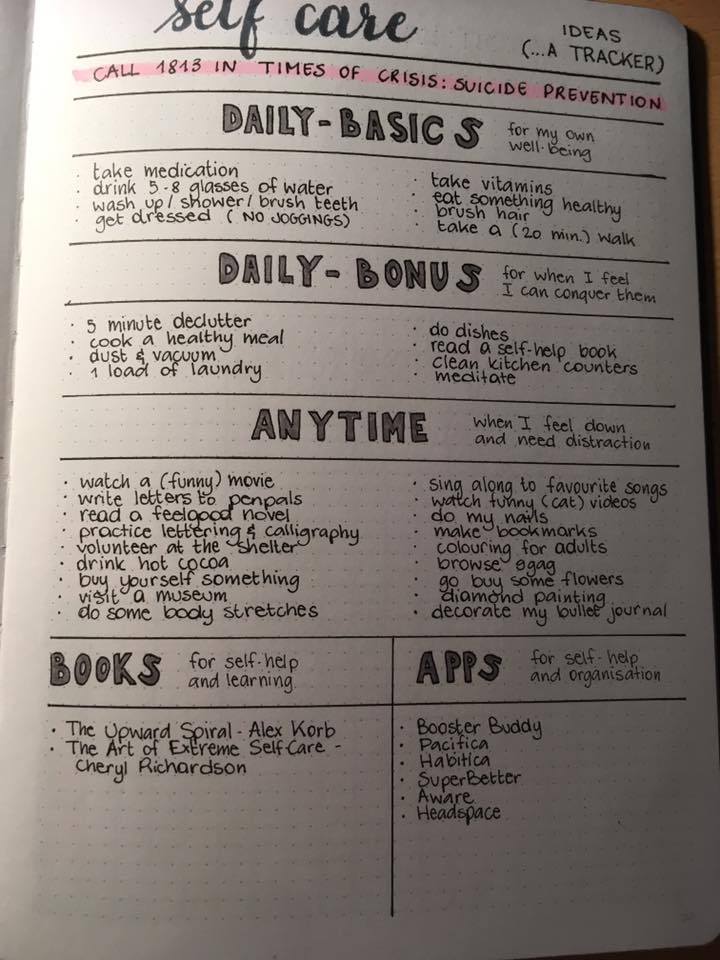 self care
IDEAS
(...A TRACKER)
CALL 1813 IN TIMES OF CRISIS: SUICIDE PREVENTION
DAILY-BASICS
for my own
well-being
· take medication
· drink 5-8 glasses of water
· wash up/shower/brush teeth
· get dressed (NO JOGGINGS)
· take vitamins
· eat something healthy
· brush hair
· take a (20 min.) walk
DAILY-BONUS
for when I feel
I can conquer them
· 5 minute declutter
· cook a healthy meal
· dust & vacuum
· 1 load of laundry
· do dishes
· read a self-help book
· clean kitchen counters
· meditate
ANYTIME
when I feel down
and need distraction
· watch a (funny) movie
· write letters to penpals
· read a feelgood novel
· practice lettering & calligraphy
· volunteer at the shelter
· drink hot cocoa
· buy yourself something
· visit a museum
· do some body stretches
· sing along to favourite songs
· watch funny (cat) videos
· do my nails
· make bookmarks
· colouring for adults
· browse 9gag
· go buy some flowers
· diamond painting
· decorate my bullet journal
BOOKS
for self-help
and learning
· The Upward Spiral - Alex Korb
· The Art of Extreme Self-Care -
Cheryl Richardson
APPS
for self-help
and organisation
· Booster Buddy
· Pacifica
· Habitica
· SuperBetter
· Aware
· Headspace